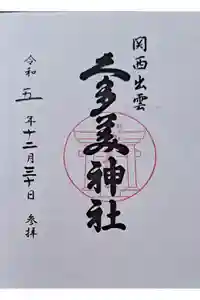 関西出雲
久多美神社
令和五年十二月三十日 参拝